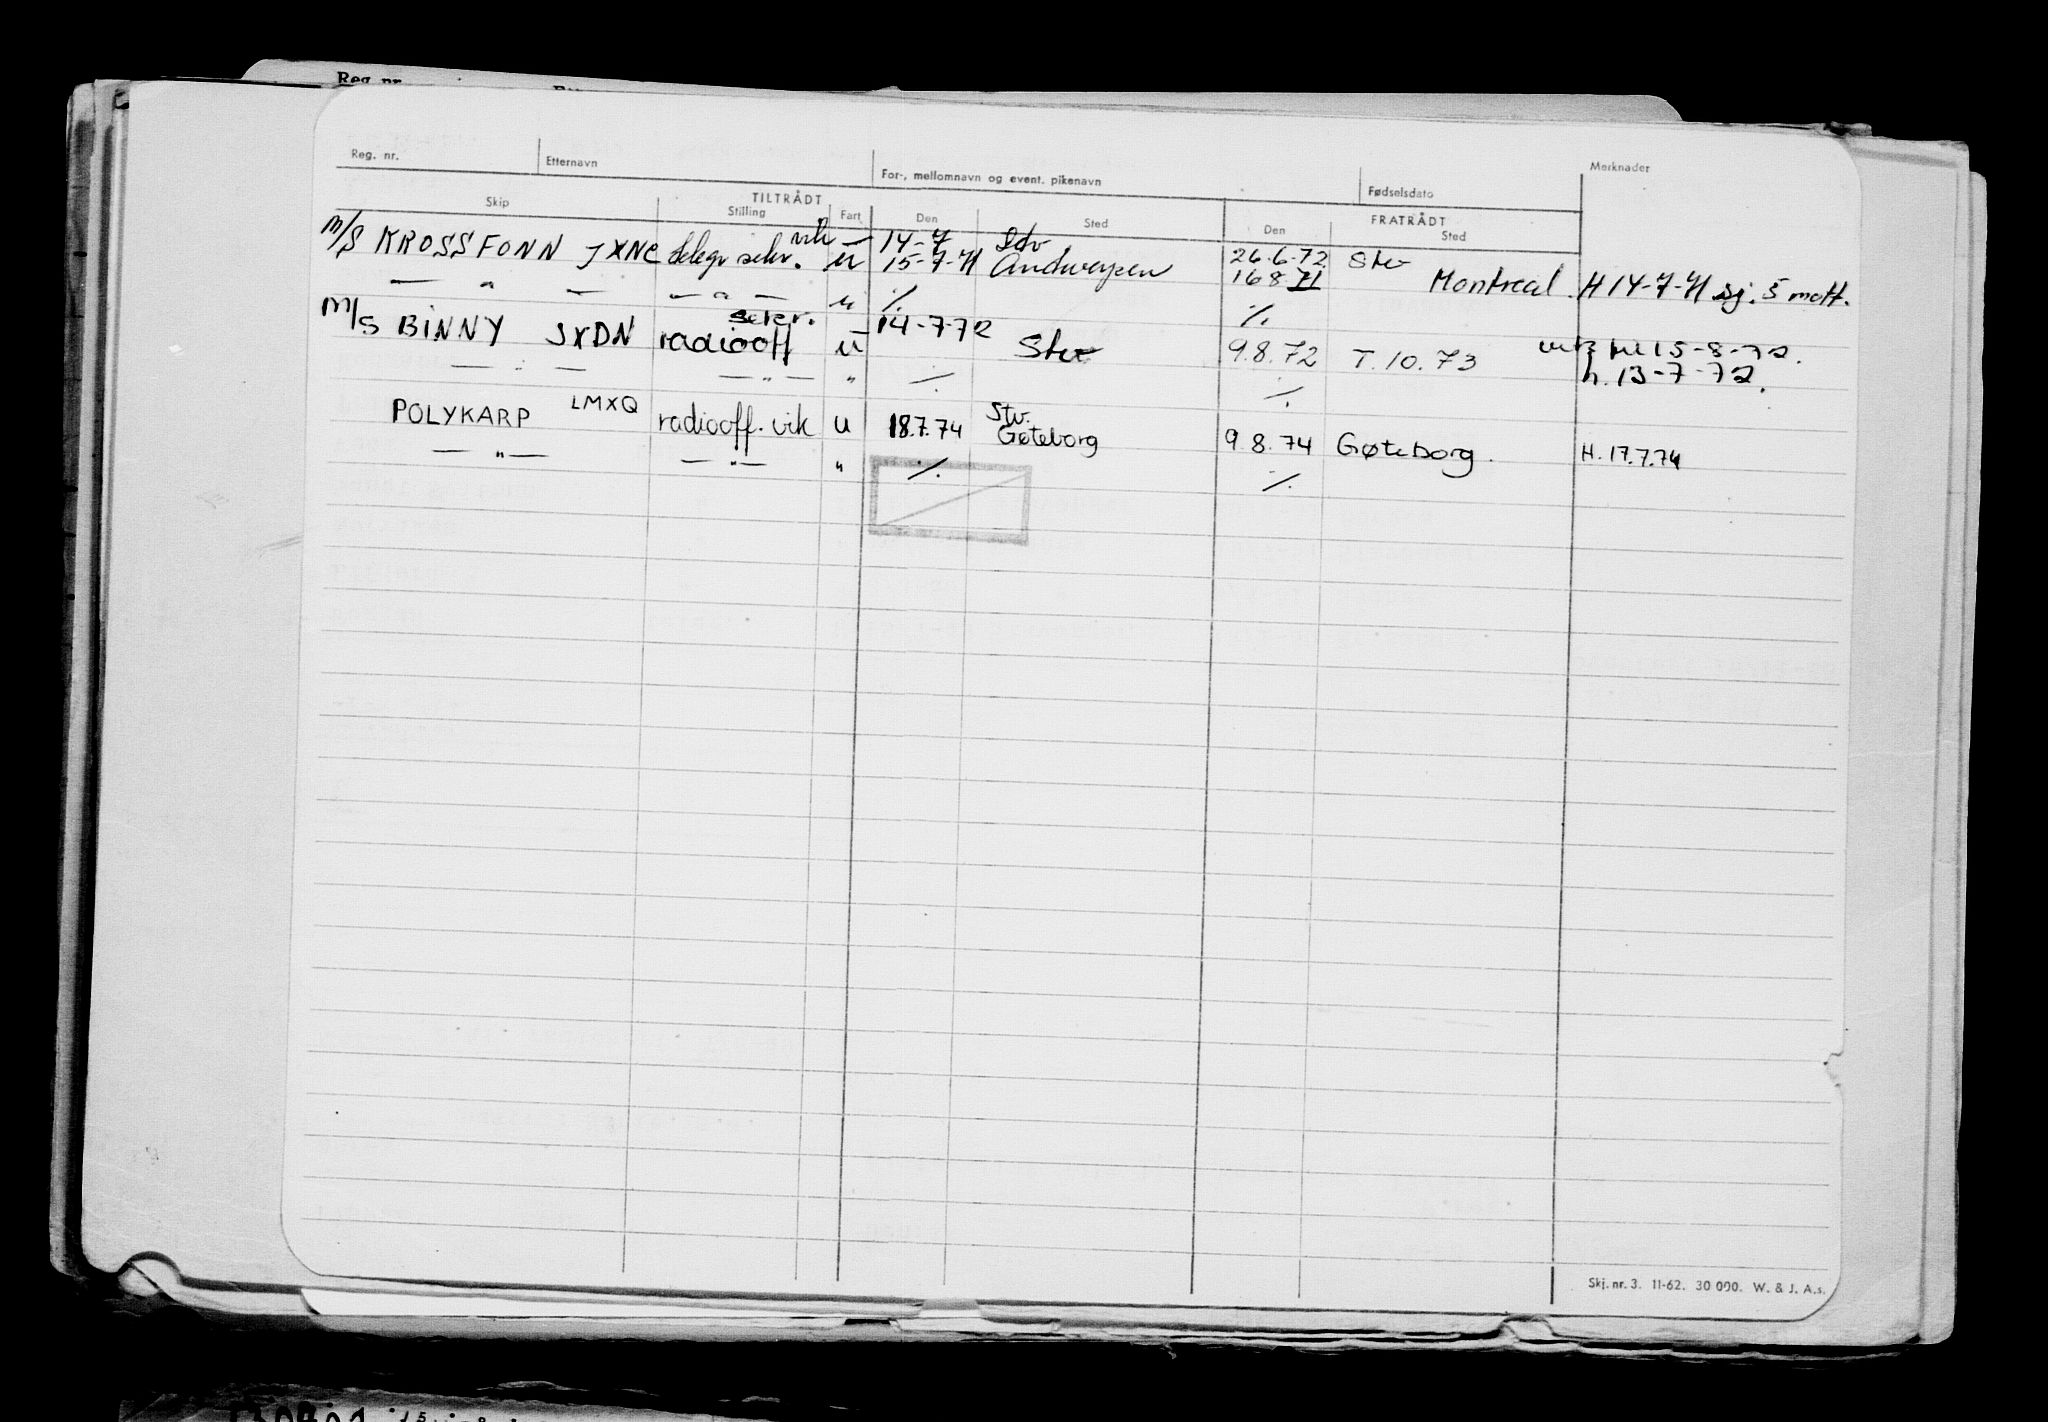 Reg. nr.
Reg. nr. Etternavn For-, mellomnavn og event. pikenavn Fødselsdato Merknader
TILTRÅDT FRATRÅDT
Skip Stilling Fart Den Sted Den Sted
M/S KROSSFONN JXNC telegr sekr. vik u 14-7 Stv 26.6.72 Stv
15-7-71 Andwerpen 16871 Montreal. H 14-7-71 sj. 5 mott.
— " — — " — u ./. ./.
M/S BINNY JXDN radiooff sekr. u 14-7-72 Stv 9.8.72 T.10.73 15-8-72.
h. 13-7-72.
— " — — " — " ./. ./.
POLYKARP LMXQ radiooff. vik u 18.7.74 Stv. Gøteborg 9.8.74 Gøteborg. H. 17.7.74
— " — — " — " ./. ./.
Skj. nr. 3. 11-62. 30 000. W. & J. A.s.